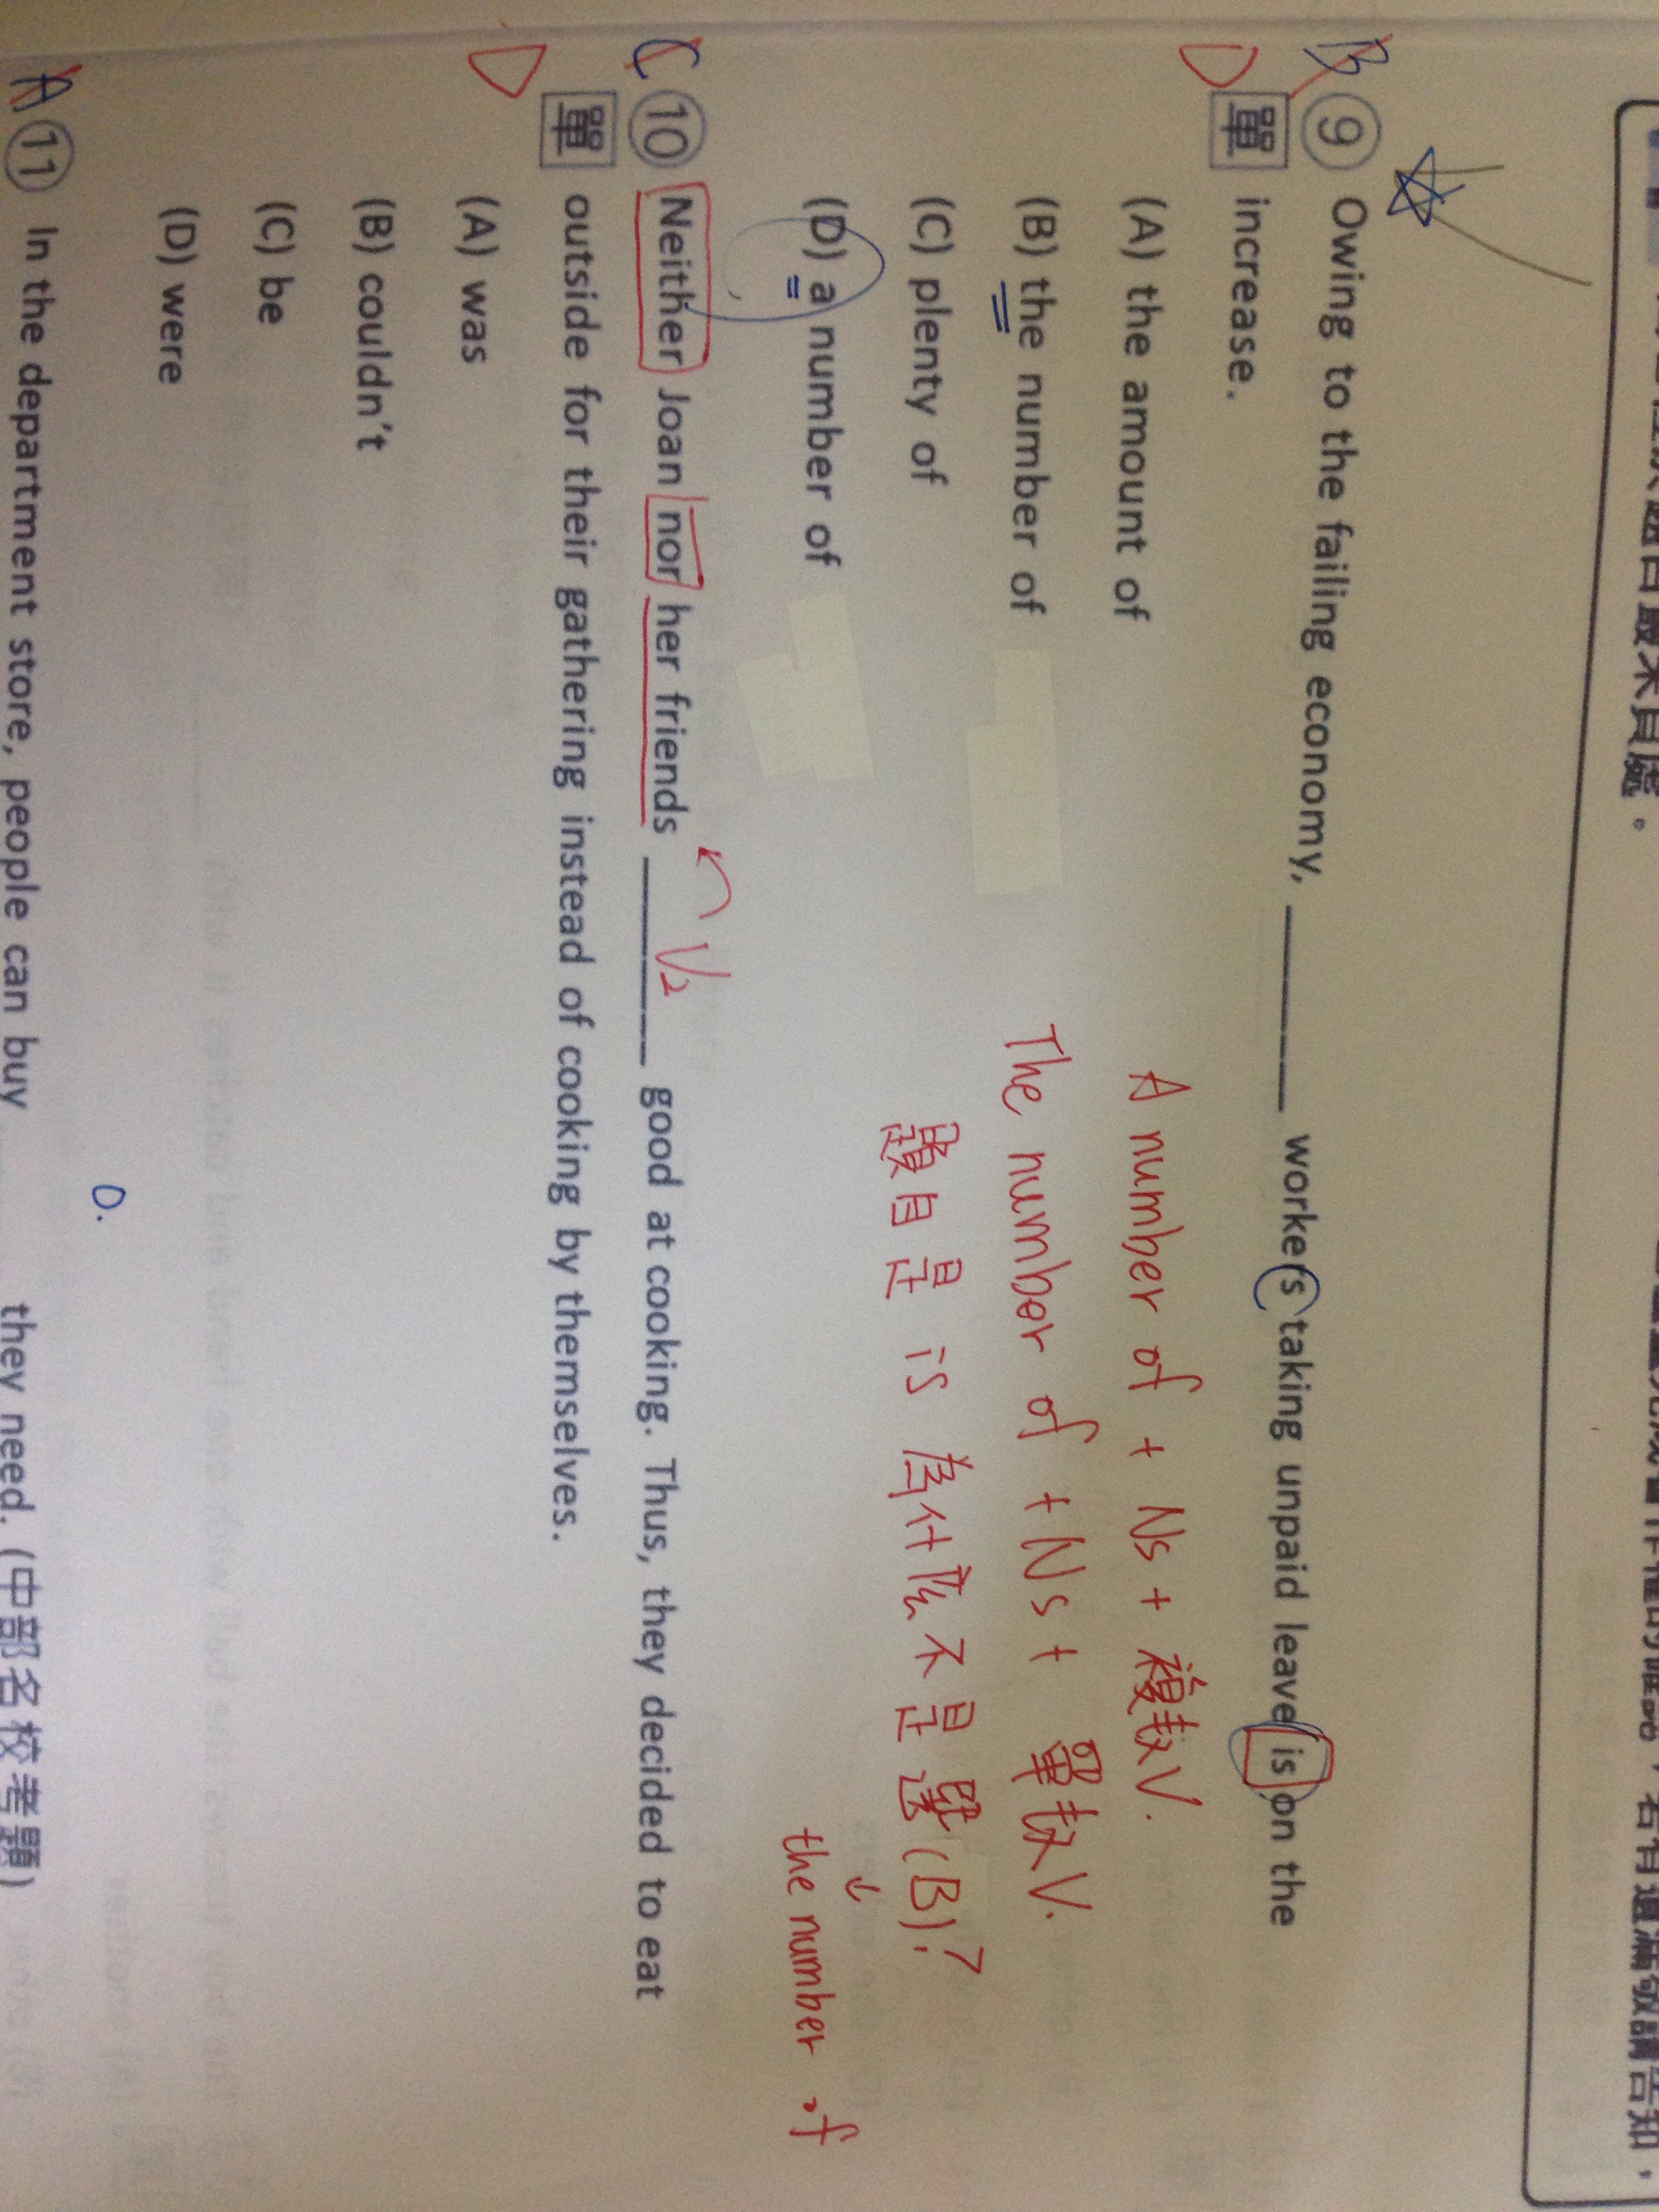 B ⑨ Owing to the failing economy, ________ workers taking unpaid leave is on the
D 單 increase.
(A) the amount of
(B) the number of
(C) plenty of
(D) a number of
A number of + Ns + 複数V.
The number of + Ns + 單数V.
題目是 is 為什麼不是選(B)?
↓
the number of
C ⑩ Neither Joan nor her friends ________ good at cooking. Thus, they decided to eat
1/2
D 單 outside for their gathering instead of cooking by themselves.
(A) was
(B) couldn't
(C) be
(D) were
D.
A ⑪ In the department store, people can buy they need. (中部名校考題)